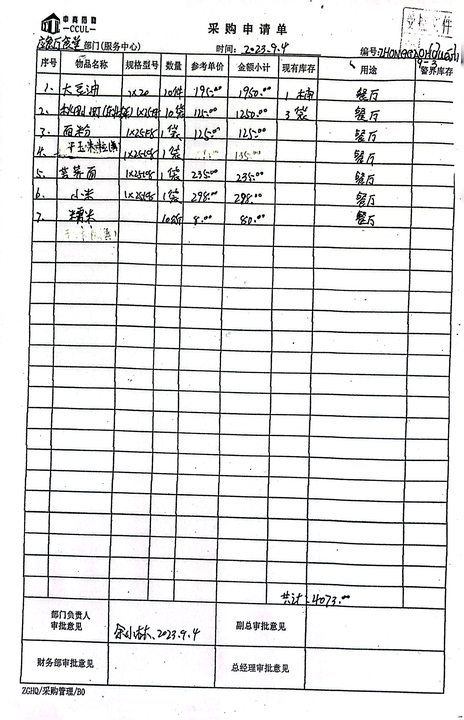 中高商联
—CCUL—
采购申请单
部门(服务中心) 时间: 2023.9.4 编号:
序号 物品名称 规格型号 数量 参考单价 金额小计 现有库存 用途 警界库存
1. 大豆油 1×20 10件 195.00 1950.00 1桶 餐厅
2. 10袋 125.00 1250.00 3袋 餐厅
3. 面粉 1×25斤 1袋 125.00 125.00 餐厅
4. 干玉米粒(黄) 1×25斤 1袋 135.00 餐厅
5. 荞麦面 1×25斤 1袋 235.00 235.00 餐厅
6. 小米 1×25斤 1袋 298.00 298.00 餐厅
7. 糯米 10斤 8.00 80.00 餐厅
共计:4073.00
部门负责人审批意见 2023.9.4 副总审批意见
财务部审批意见 总经理审批意见
ZGHQ/采购管理/B0